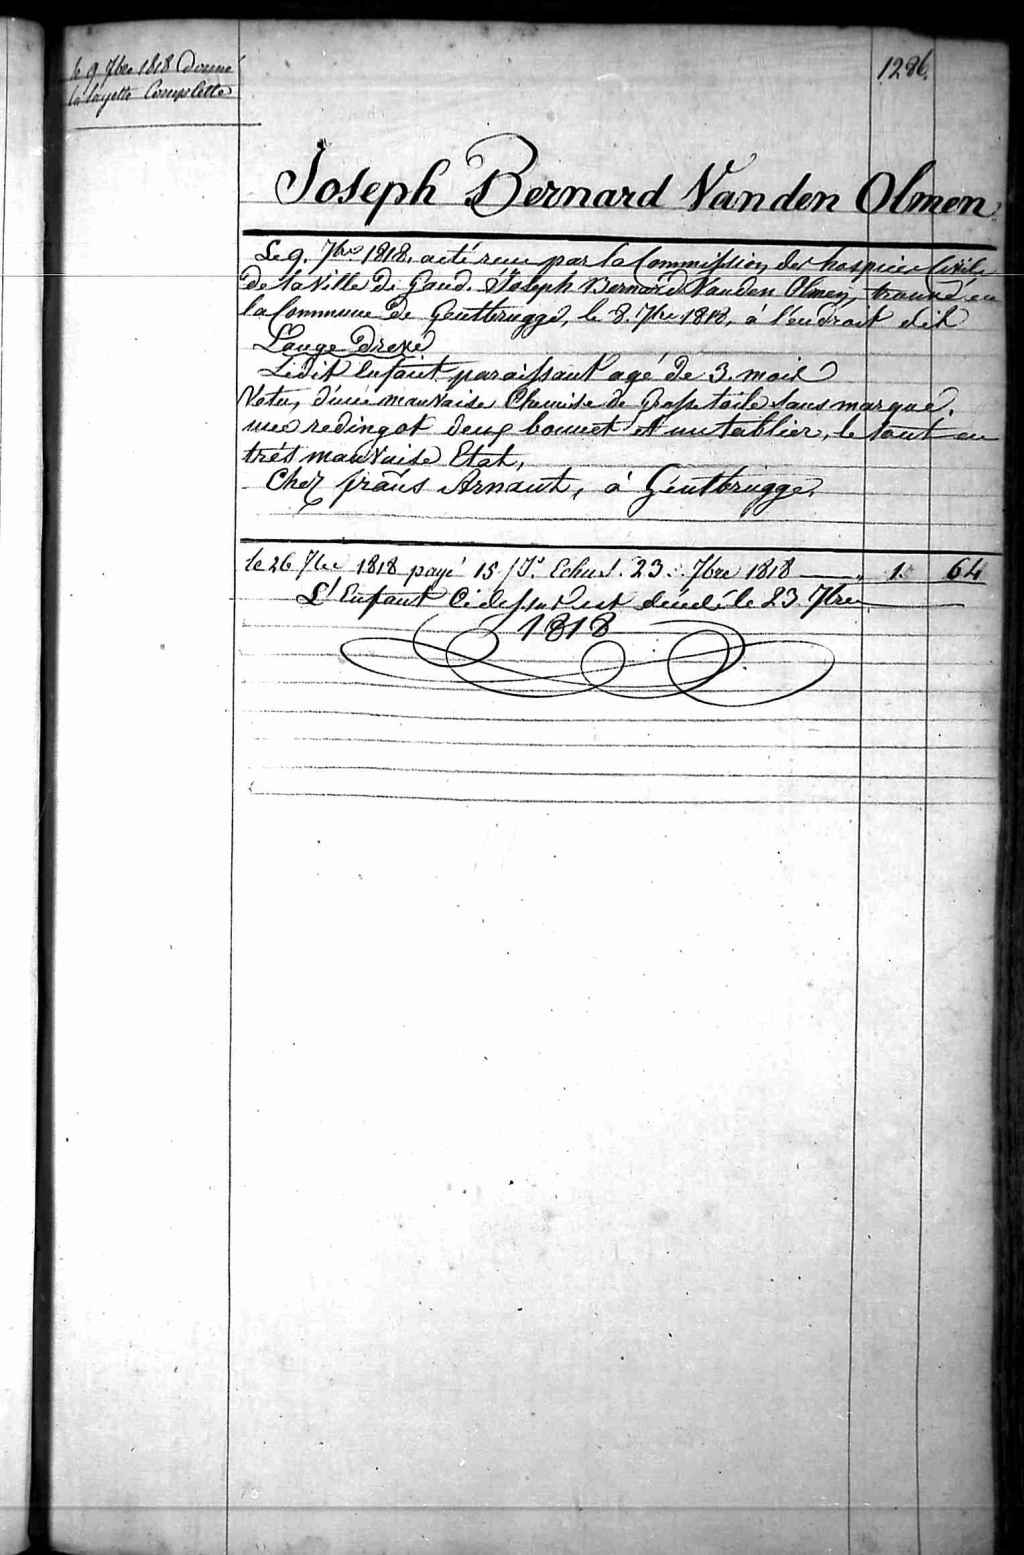 le 9 7bre 1818 Donné
la layette Complette
1286.
Joseph Bernard Vanden Olmen
Le 9. 7bre 1818, a été recu par la Commission des hospices Civils
de la Ville de Gand. Joseph Bernard Vanden Olmen, trouvé en
la Commune de Gentbrugge, le 8. 7bre 1818, à l'endroit dit
Lange Dreve
Ledit Enfant paraissant agé de 3. mois
Vétu, d'une mauvaise Chemise de Grosse toile sans marque,
une redingot deux bonnet et un tablier, le tout en
trés mauvaise Etat,
Chez frans Arnaut, à Gentbrugge,
le 26 7bre 1818 payé 15 Js Echus. 23. 7bre 1818 — " 1. 64
L'Enfant Cidessus est décédé le 23 7bre
1818